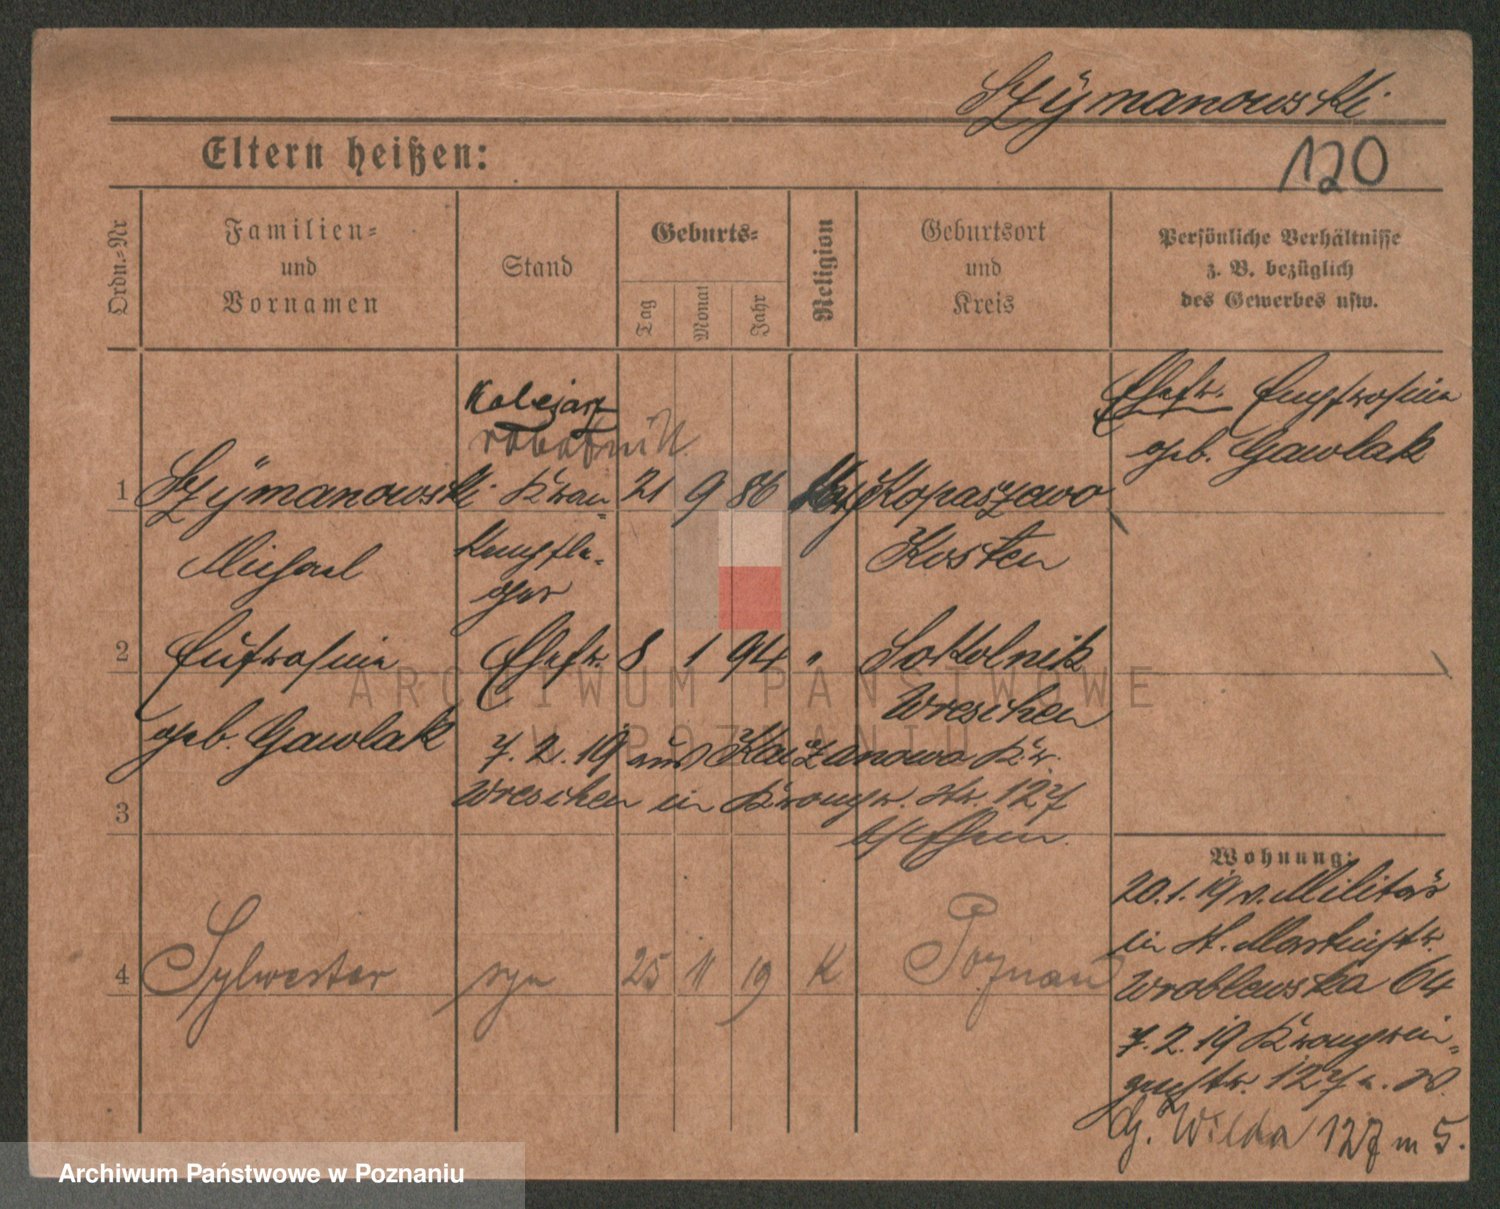 Szÿmanowski
120
Eltern heißen:
Ordn.-Nr
Familien-
und
Vornamen
Stand
Geburts-
Tag
Monat
Jahr
Religion
Geburtsort
und
Kreis
Persönliche Verhältnisse
z. B. bezüglich
des Gewerbes usw.
Kolejarz
robotnik
1 Szÿmanowski Kran- 21 9 86 Kopaszewo
Michael
kenpfle-
ger
Kosten
Ehefr. Eufrosine
geb. Gawlak
2 Eufrosine Ehefr. 8 1 94 " Sokolnik
geb. Gawlak
Wreschen
7. 2. 19 aus Kaczanowo Kr.
3 Wreschen in Kronpr. str. 127
b/Ehem.
4 Sylwester syn 25 11 19 K Poznań
Wohnung:
20.1.19 v. Militär
in St. Martinstr.
Wroblewska 64
7.2.19 Kronprin-
zenstr. 127
G. Wilda 127 m 5.
ARCHIWUM PAŃSTWOWE
W POZNANIU
Archiwum Państwowe w Poznaniu